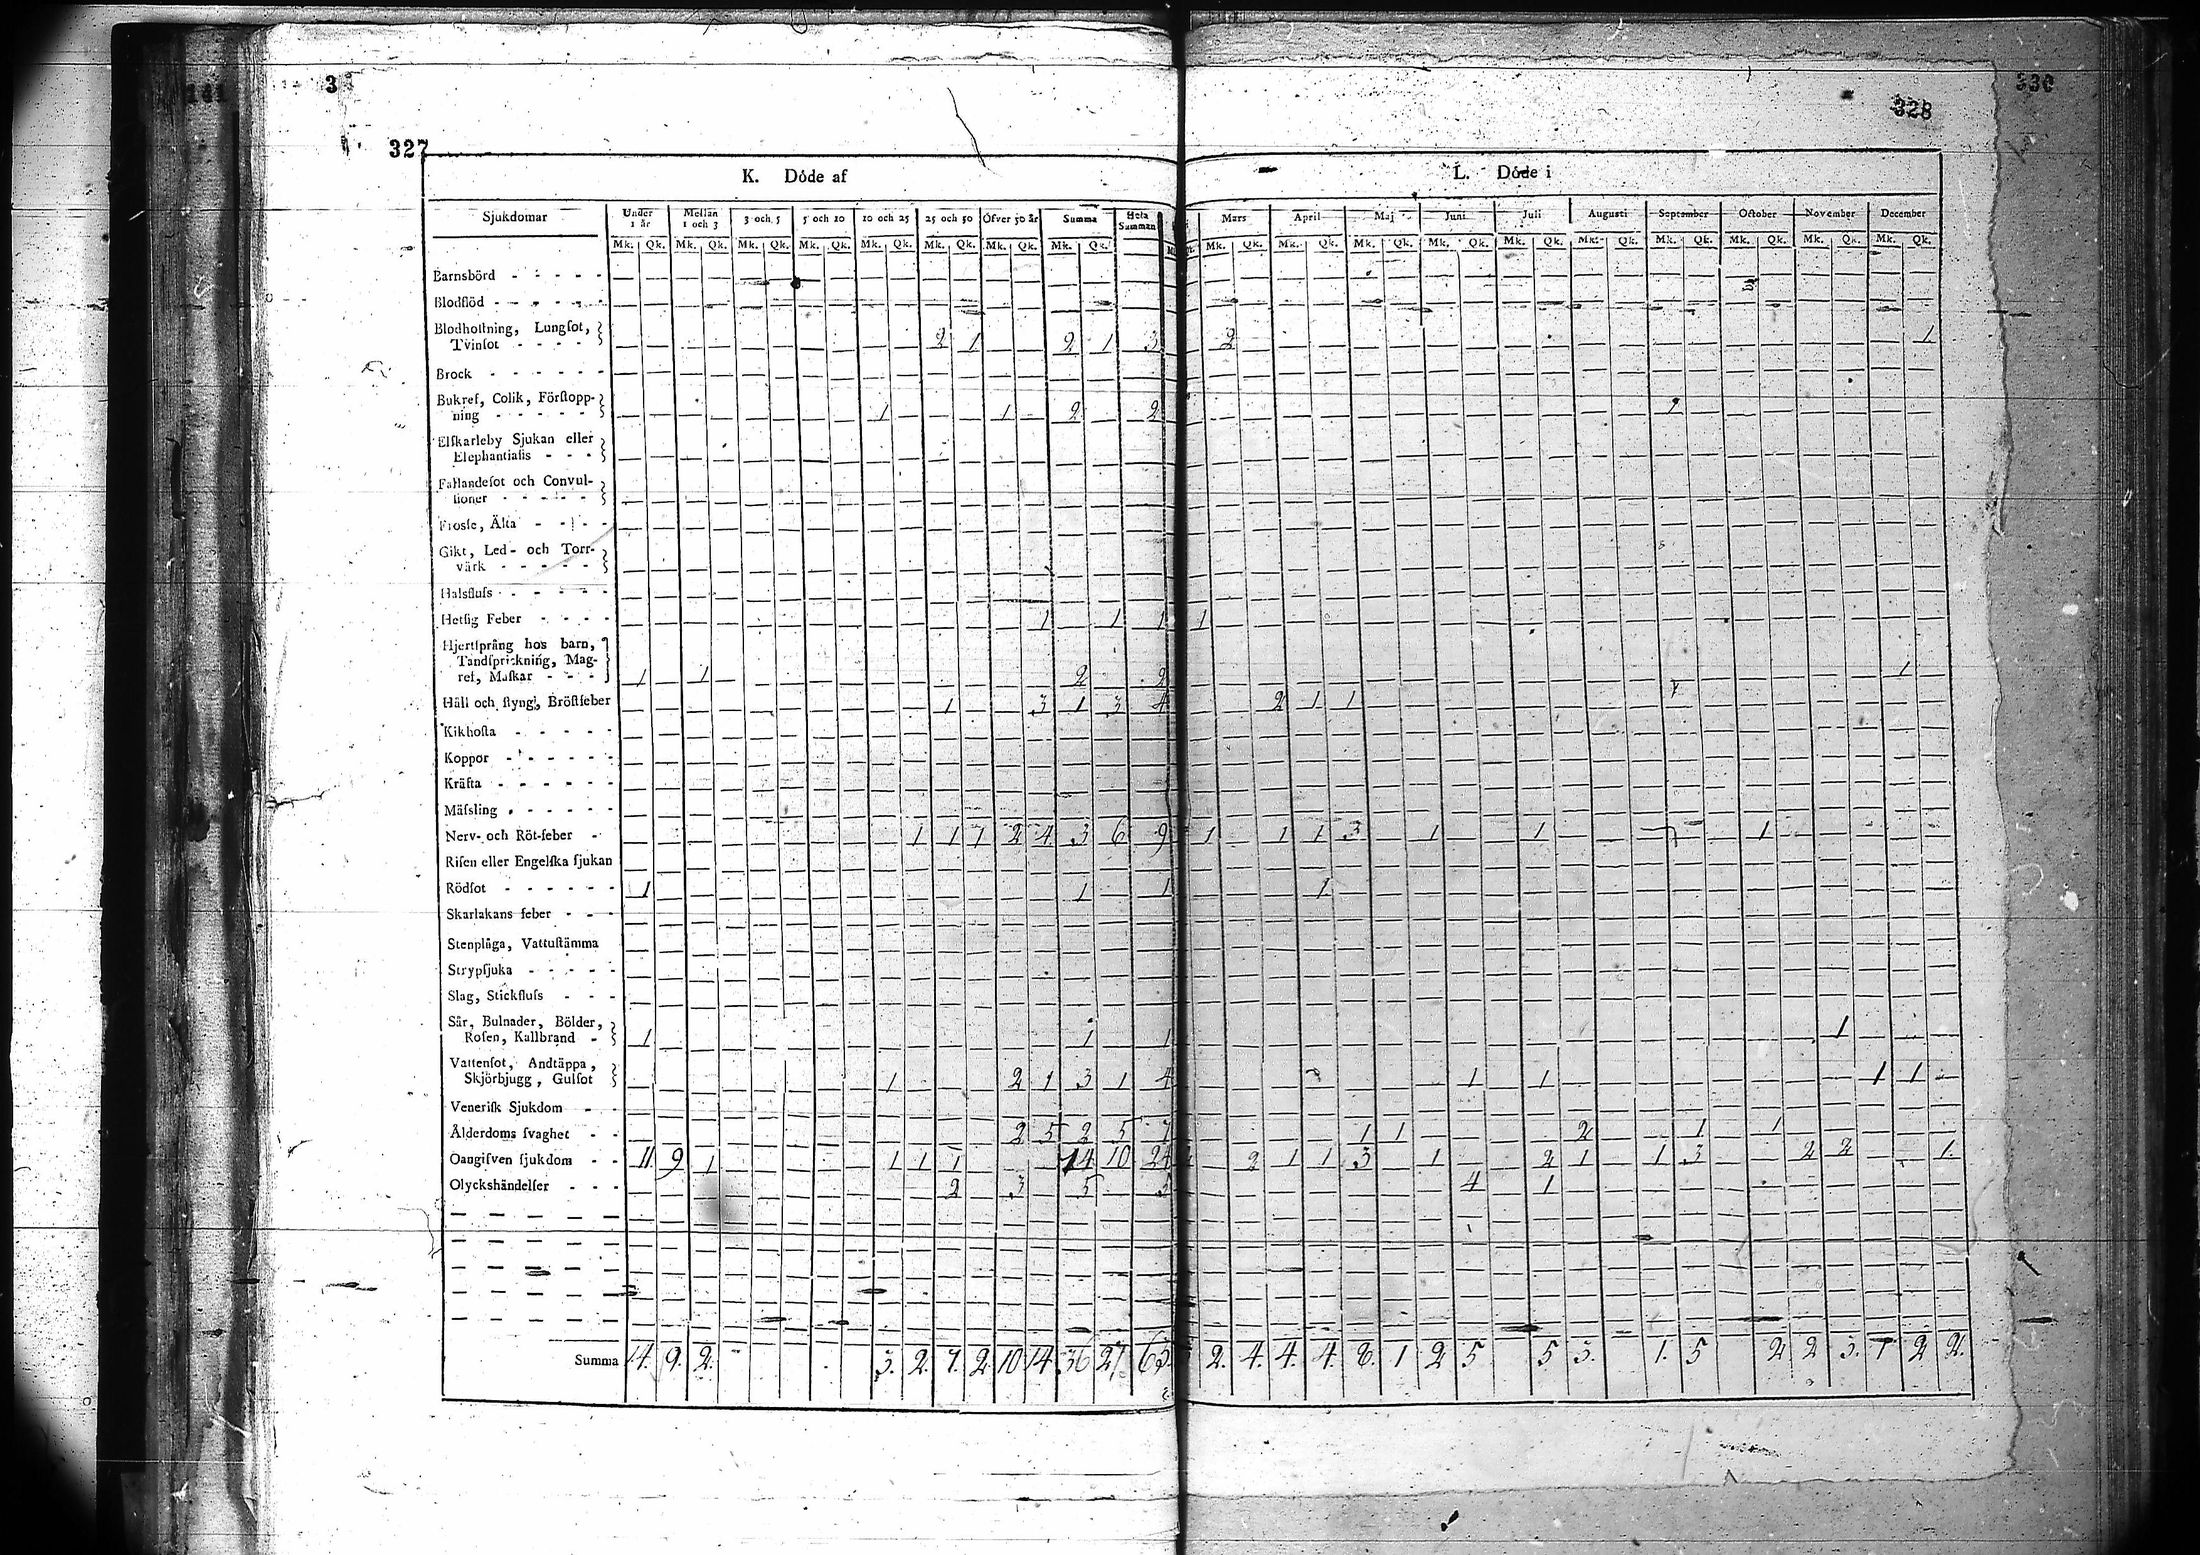 327
328
330
K. Döde af
L. Döde i
Sjukdomar Under 1 år Mellan 1 och 3 3 och 5 5 och 10 10 och 25 25 och 50 Öfver 50 år Summa Hela Summan
Mars April Maj Juni Juli Augusti September October November December
Mk. Qk. Mk. Qk. Mk. Qk. Mk. Qk. Mk. Qk. Mk. Qk. Mk. Qk. Mk. Qk.
Mk. Qk. Mk. Qk. Mk. Qk. Mk. Qk. Mk. Qk. Mk. Qk. Mk. Qk. Mk. Qk. Mk. Qk. Mk. Qk.
Barnsbörd
Blodflöd
Blodhoſtning, Lungſot,
Tvinſot 2 1 2 1 3 2 1
Brock
Bukref, Colik, Förſtopp-
ning 1 1 2 2
Elſkarleby Sjukan eller
Elephantiaſis
Fallandeſot och Convul-
ſioner
Frosſe, Älta
Gikt, Led- och Torr-
värk
Halsfluſs
Hetſig Feber 1 1 1 1
Hjertſprång hos barn,
Tandſprickning, Mag-
ref, Maſkar 1 1 2 2 1
Håll och ſtyng, Bröſtfeber 1 3 1 3 4 2 1 1
Kikhoſta
Koppor
Kräfta
Mäſsling
Nerv- och Röt-feber 1 1 1 2 4 3 6 9 1 1 1 3 1 1 1
Riſen eller Engelſka ſjukan
Rödſot 1 1 1 1
Skarlakans feber
Stenplåga, Vattuſtämma
Strypſjuka
Slag, Stickfluſs
Sår, Bulnader, Bölder,
Roſen, Kallbrand 1 1 1 1
Vattenſot, Andtäppa,
Skjörbjugg, Gulſot 1 2 1 3 1 4 1 1 1 1
Veneriſk Sjukdom
Ålderdoms ſvaghet 2 5 2 5 7 1 1 2 1 1
Oangifven ſjukdom 11 9 1 1 1 1 14 10 24 2 1 1 3 1 2 1 1 3 2 2 1
Olyckshändelſer 2 3 5 5 4 1
Summa 14. 9. 2. 3. 2. 7. 2 10 14 36 27 63 2. 4. 4. 4. 8. 1 2 5 5 3. 1. 5 2 2 3. 1 2 2.